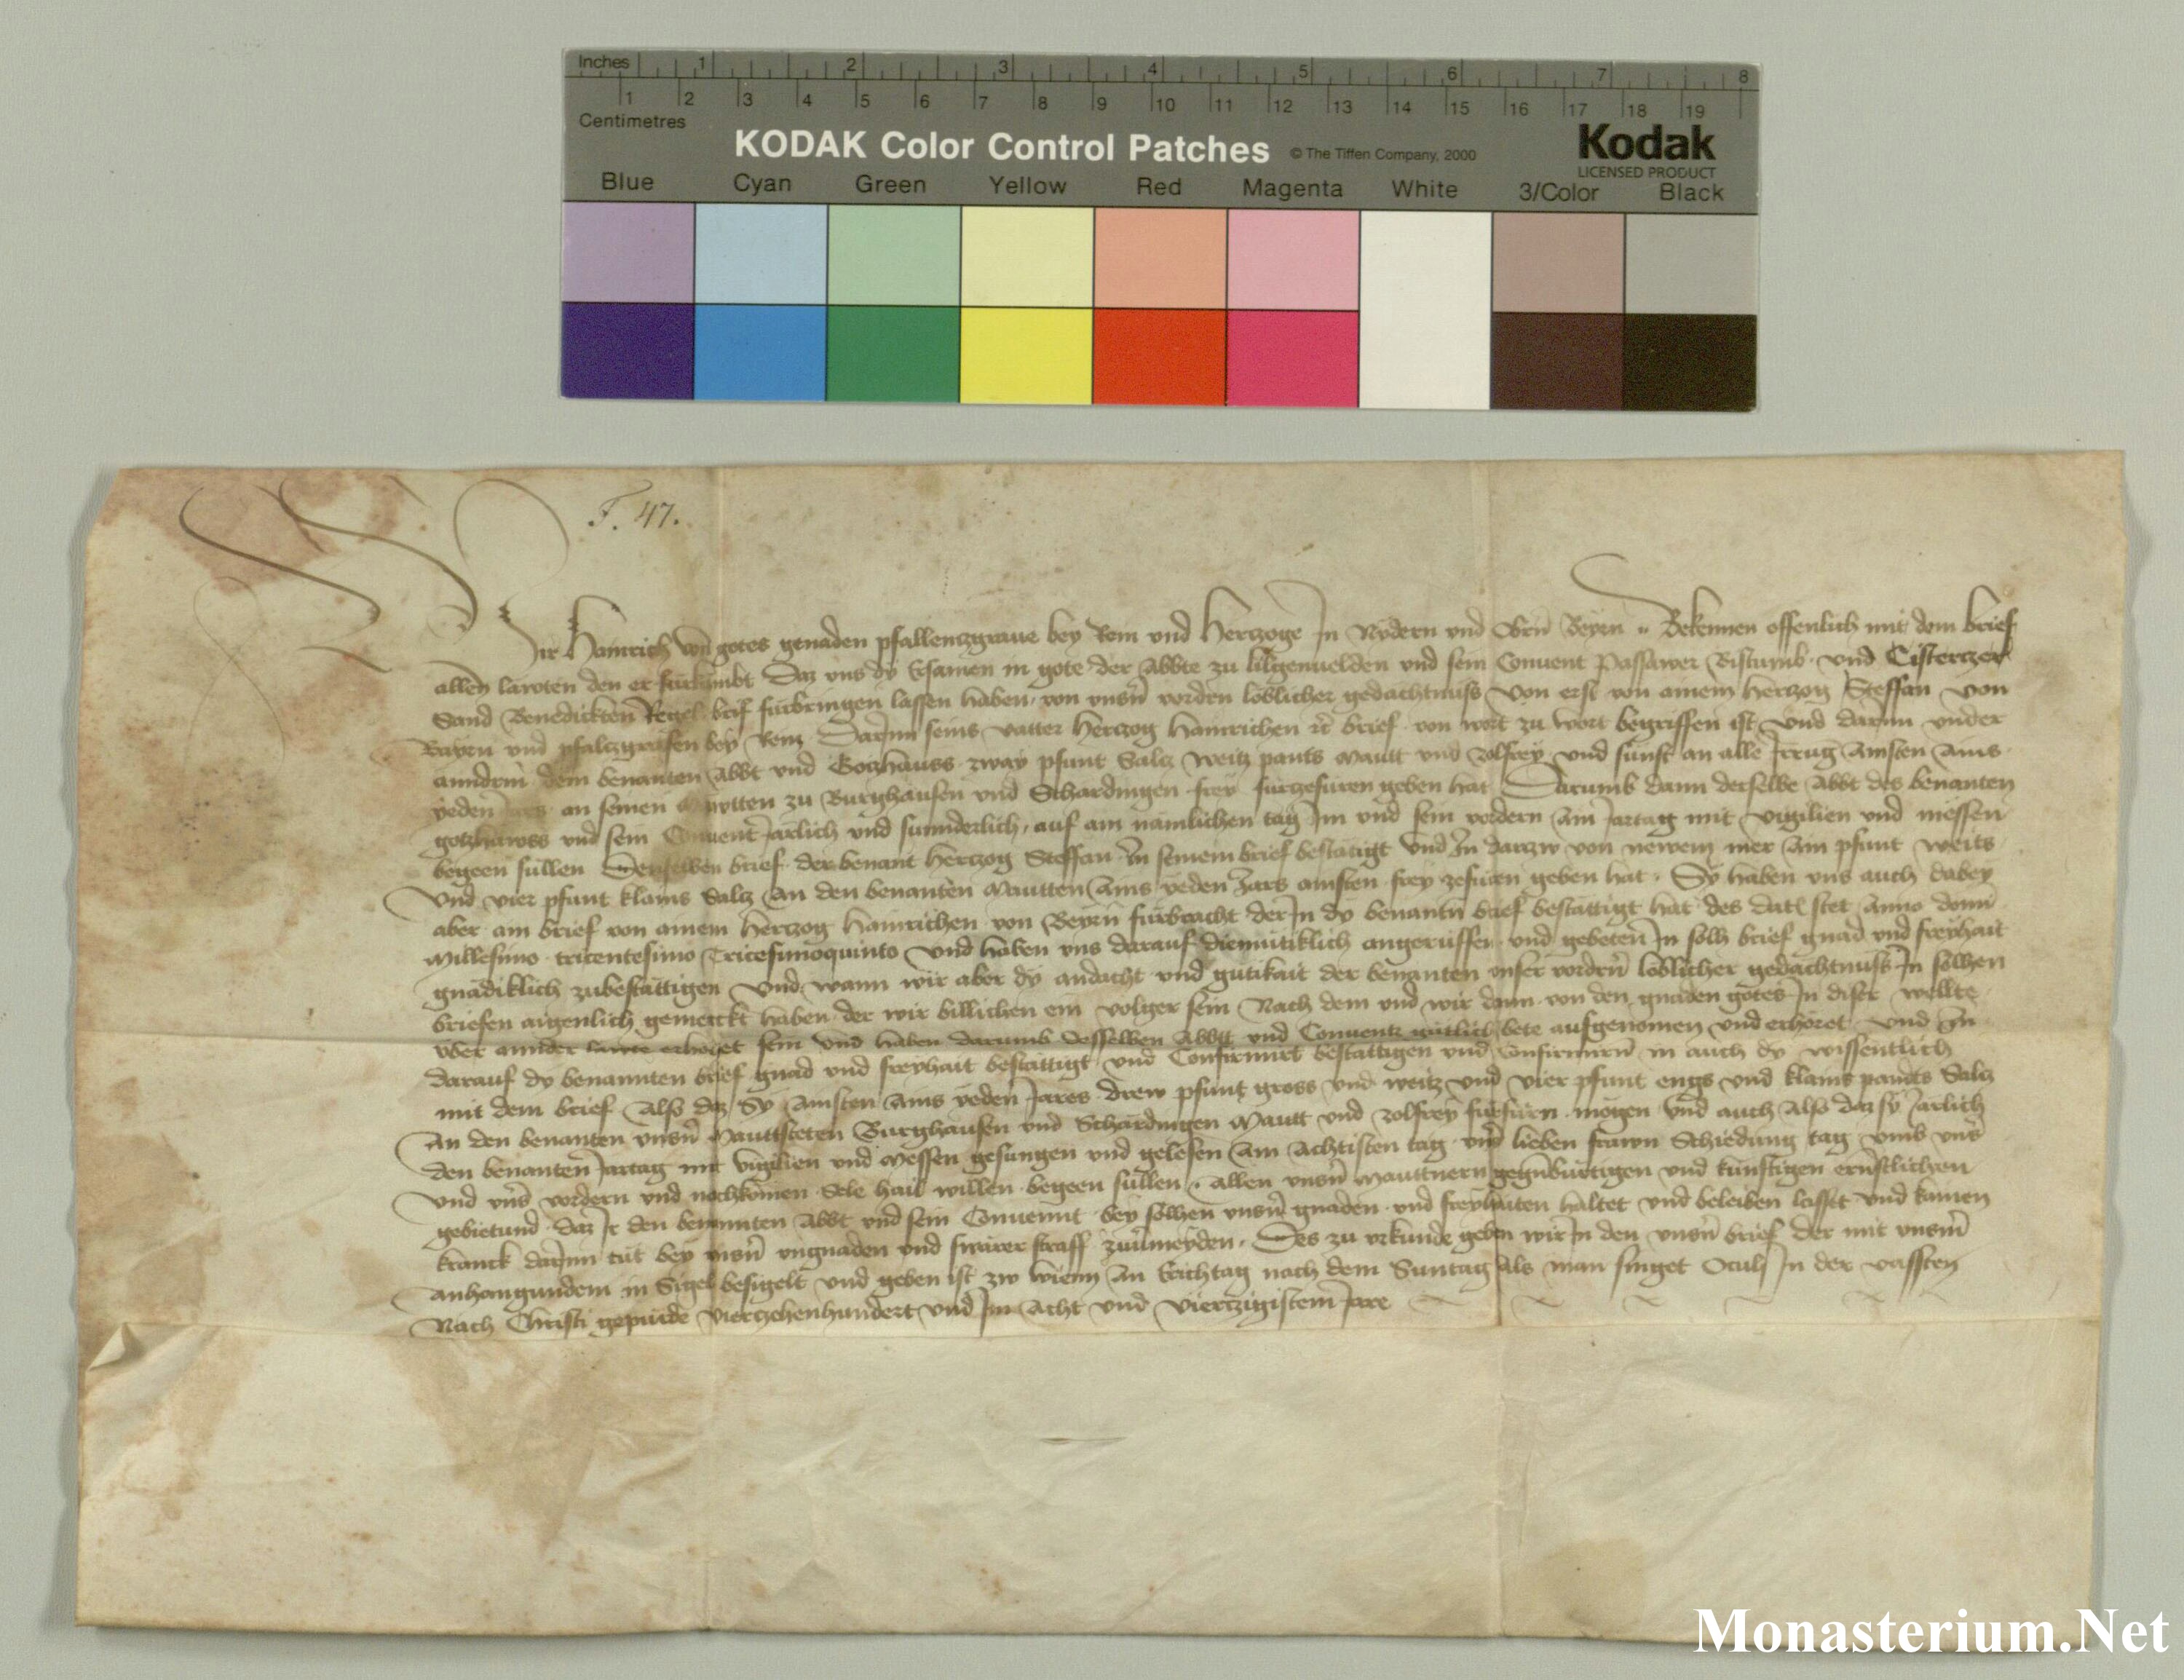 Inches 1 2 3 4 5 6 7 8
1 2 3 4 5 6 7 8 9 10 11 12 13 14 15 16 17 18 19
Centimetres
KODAK Color Control Patches © The Tiffen Company, 2000 Kodak
LICENSED PRODUCT
Blue Cyan Green Yellow Red Magenta White 3/Color Black
F. 47.
Wir Hainrich von gotes genaden pfallentzgraue bey Rein und Hertzoge In Nydern und Obrn Beyrn Bekennen offenlich mit dem brief
allen lawten den er furkumbt Daz uns dy Ersamen in gote der Abbte zu lilgenuelden und sein Conuent Passawer Bistumb und Cistertzer
Sand Benedickten Regel brif furbringen lassen haben von unsern vordern loblicher gedachtnuss Von erst von ainem hertzog Steffan von
Bayrn und pfaltzgrafen bey Rein Darinn seins vatter Hertzog Hainrichen etc brief von wort zu wort begriffen ist Und darinn under
anndern dem benanten Abbt und Gotzhauss zway pfunt Saltz weitz pants Mautt und zolfrey und sunst an alle Irrung Ainsten Ains
yeden Jares an seinen Mawtten zu Burghausen und Schardingen frey furzefuren geben hat Darumb dann derselbe Abbt des benanten
gotzhawss und sein Conuent Jarlich und sunnderlich auf ain namlichen tag Im und sein vordern ain Jartag mit vigilien und messen
begeen sullen Denselben brief der benant hertzog Steffan In seinem brief bestatigt Und In darzw von newem mer Ain pfunt weits
Und vier pfunt klains Saltz An den benanten Mautten Ains yeden Jars ainsten frey zefuren geben hat Sy haben uns auch dabey
aber ain brief von ainem Hertzog Hainrichen von Beyrn furbracht der In dy benantn brief bestattigt hat des dat stet Anno domini
Millesimo tricentesimo Tricesimoquinto Und haben uns darauf diemutiklich angeruffen und gebeten In solh brief gnad und freyhait
gnadiklich zubestattigen Und wann wir aber dy andacht und gutikait der benanten unser vordern loblicher gedachtnuss In solhen
briefen aigenlich gemerckt haben der wir billichen ein volger sein Nach dem und wir dann von den gnaden gotes In diser wellte
uber annder lawte erhohet sein Und haben darumb desselben Abbtt und Conuents gutlich bete aufgenomen und erhoret Und In
darauf dy benannten brief gnad und freyhait bestattigt und Confirmirt bestattigen und Confirmiren in auch dy wissentlich
mit dem brief Also daz Sy Ainsten Ains yeden Jares drew pfunt gross und weitz und vier pfunt engs und klains pandts Saltz
An den benanten unsern Mauttsteten Burghausen und Schardingen Mautt und zolfrey furfuren mogen Und auch Also daz sy Jarlich
den benanten Jartag mit vigilien und Messen gesungen und gelesen Am achtisten tag unser lieben frawn Schiedung tag umb unser
Und unser vordern und nachkomen Sele hail willen begeen sullen allen unsern Mauttnern gegenburtigen und kunftigen ernstlichen
gebietund daz Ir den benannten Abbt und sein Conuennt bey solhen unsern gnaden und freyhaiten haltet und beleiben lasset Und kainen
kranck darinn tut bey unsern ungnaden und swarer straff zuuermeyden Des zu urkunde geben wir In den unsern brief der mit unserm
anhangundem in Sigel besigelt und geben ist zw Wienn An Erichtag nach dem Suntag Als man singet Oculi In der vassten
Nach Christi gepurde vierzehenhundert und Im acht und viertzigistem Jare
Monasterium.Net